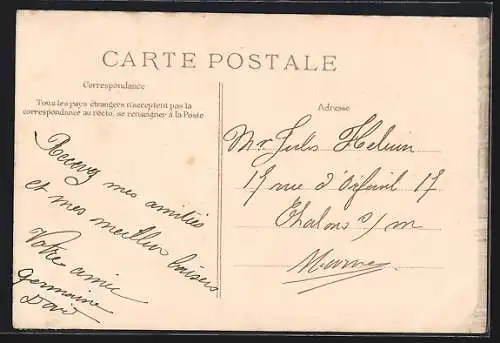 CARTE POSTALE
Correspondance
Tous les pays étrangers n'acceptent pas la
correspondance au recto, se renseigner à la Poste
Adresse
Recevez mes amitiés
et mes meilleur baisers
Votre amie
Germaine
Mr Jules
17 rue d' 17
Chalons s/m
Marne